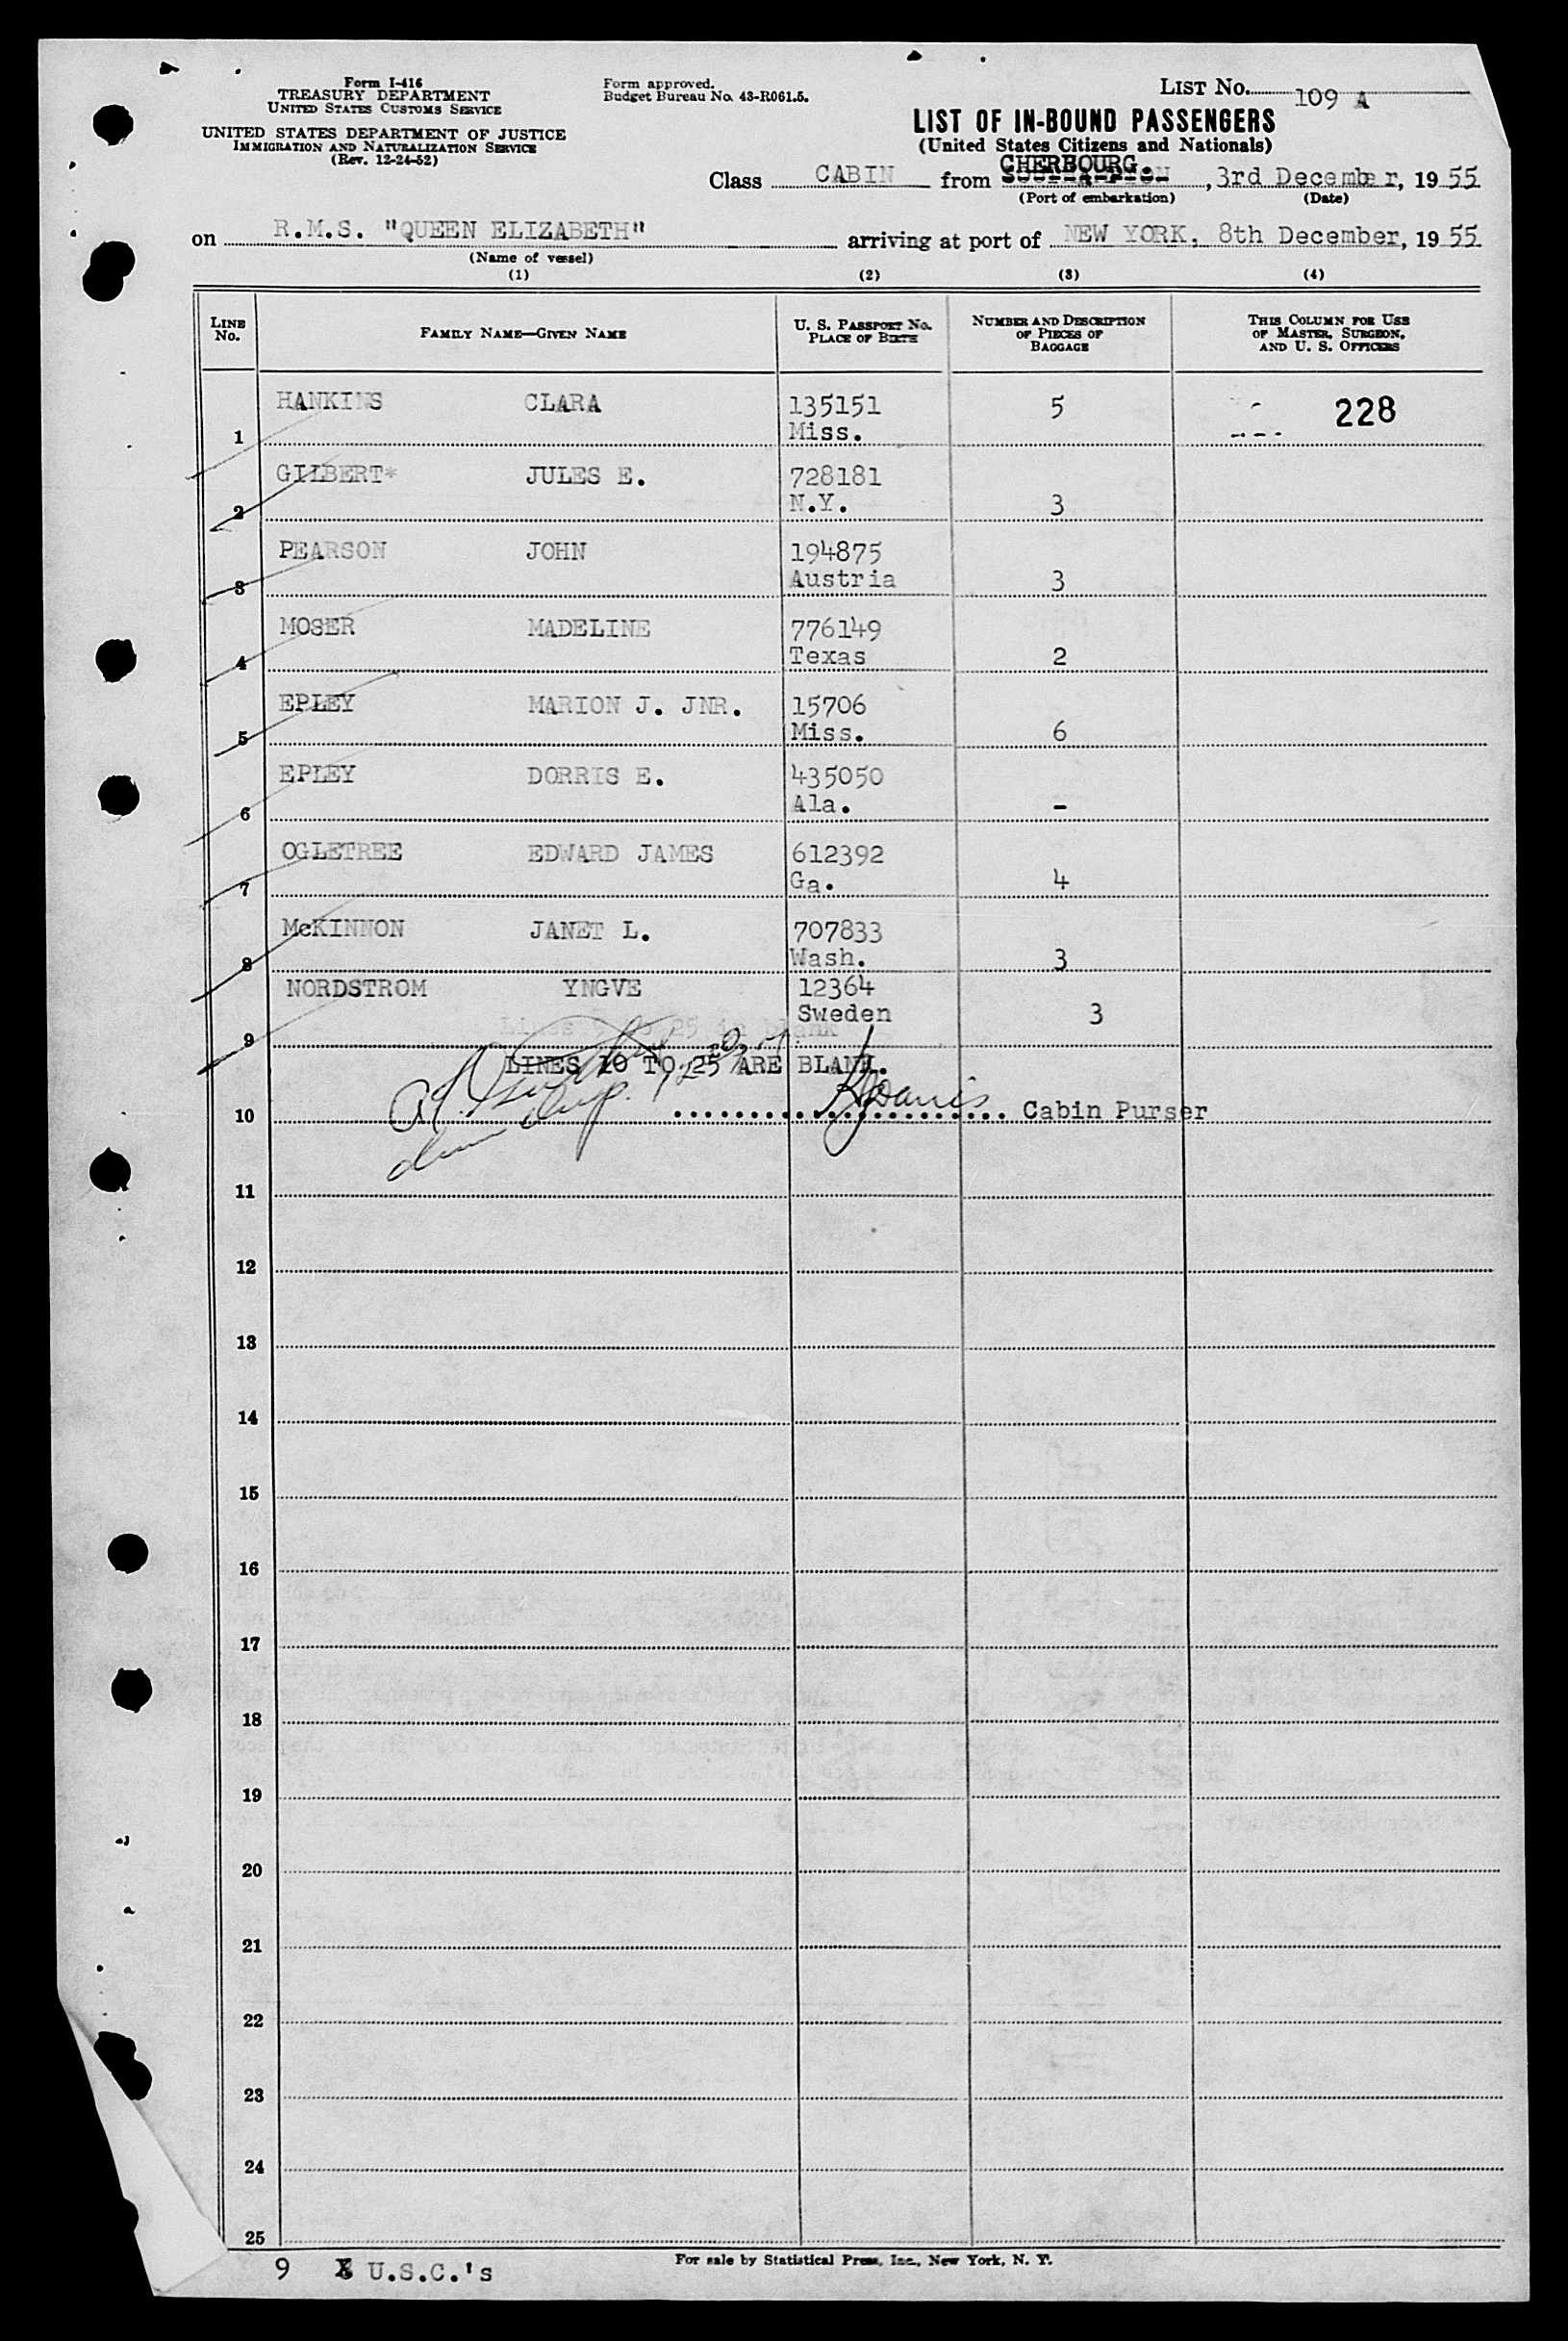 Form I-416
TREASURY DEPARTMENT
UNITED STATES CUSTOMS SERVICE
UNITED STATES DEPARTMENT OF JUSTICE
IMMIGRATION AND NATURALIZATION SERVICE
(Rev. 12-24-52)
Form approved.
Budget Bureau No. 43-R061.5.
LIST No. 109 A
LIST OF IN-BOUND PASSENGERS
(United States Citizens and Nationals)
Class CABIN from CHERBOURG. , 3rd December, 1955
(Port of embarkation) (Date)
on R.M.S. "QUEEN ELIZABETH" arriving at port of NEW YORK, 8th December, 1955
(Name of vessel)
(1) (2) (3) (4)
LINE No. FAMILY NAME—GIVEN NAME U. S. PASSPORT No. PLACE OF BIRTH NUMBER AND DESCRIPTION OF PIECES OF BAGGAGE THIS COLUMN FOR USE OF MASTER, SURGEON, AND U. S. OFFICERS
HANKINS CLARA 135151 5 228
1 Miss.
GILBERT* JULES E. 728181
2 N.Y. 3
PEARSON JOHN 194875
3 Austria 3
MOSER MADELINE 776149
4 Texas 2
EPLEY MARION J. JNR. 15706
5 Miss. 6
EPLEY DORRIS E. 435050
6 Ala. -
OGLETREE EDWARD JAMES 612392
7 Ga. 4
McKINNON JANET L. 707833
8 Wash. 3
NORDSTROM YNGVE 12364
9 Sweden 3
LINES 10 TO 25 ARE BLANK.
10 Cabin Purser
11
12
13
14
15
16
17
18
19
20
21
22
23
24
25
9 U.S.C.'s
For sale by Statistical Press, Inc., New York, N. Y.